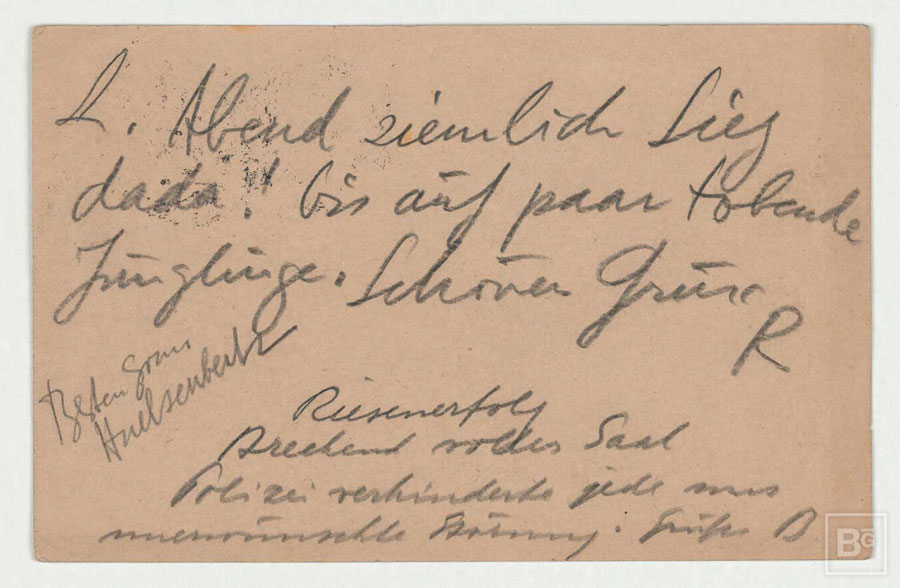 L. Abend ziemlich Sieg
dada! bis auf paar tobende
Jünglinge. Schönen Gruss
R
Besten Gruss
Huelsenbeck
Riesenerfolg
Brechend voller Saal
Polizei verhinderte jede uns
unerwünschte Störung. Grüße B
BG